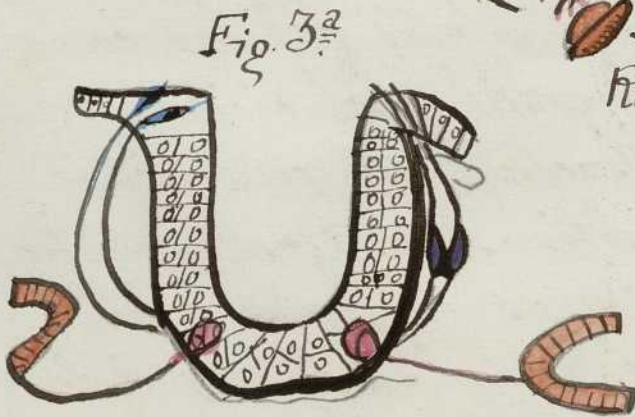 Fig. 3ª